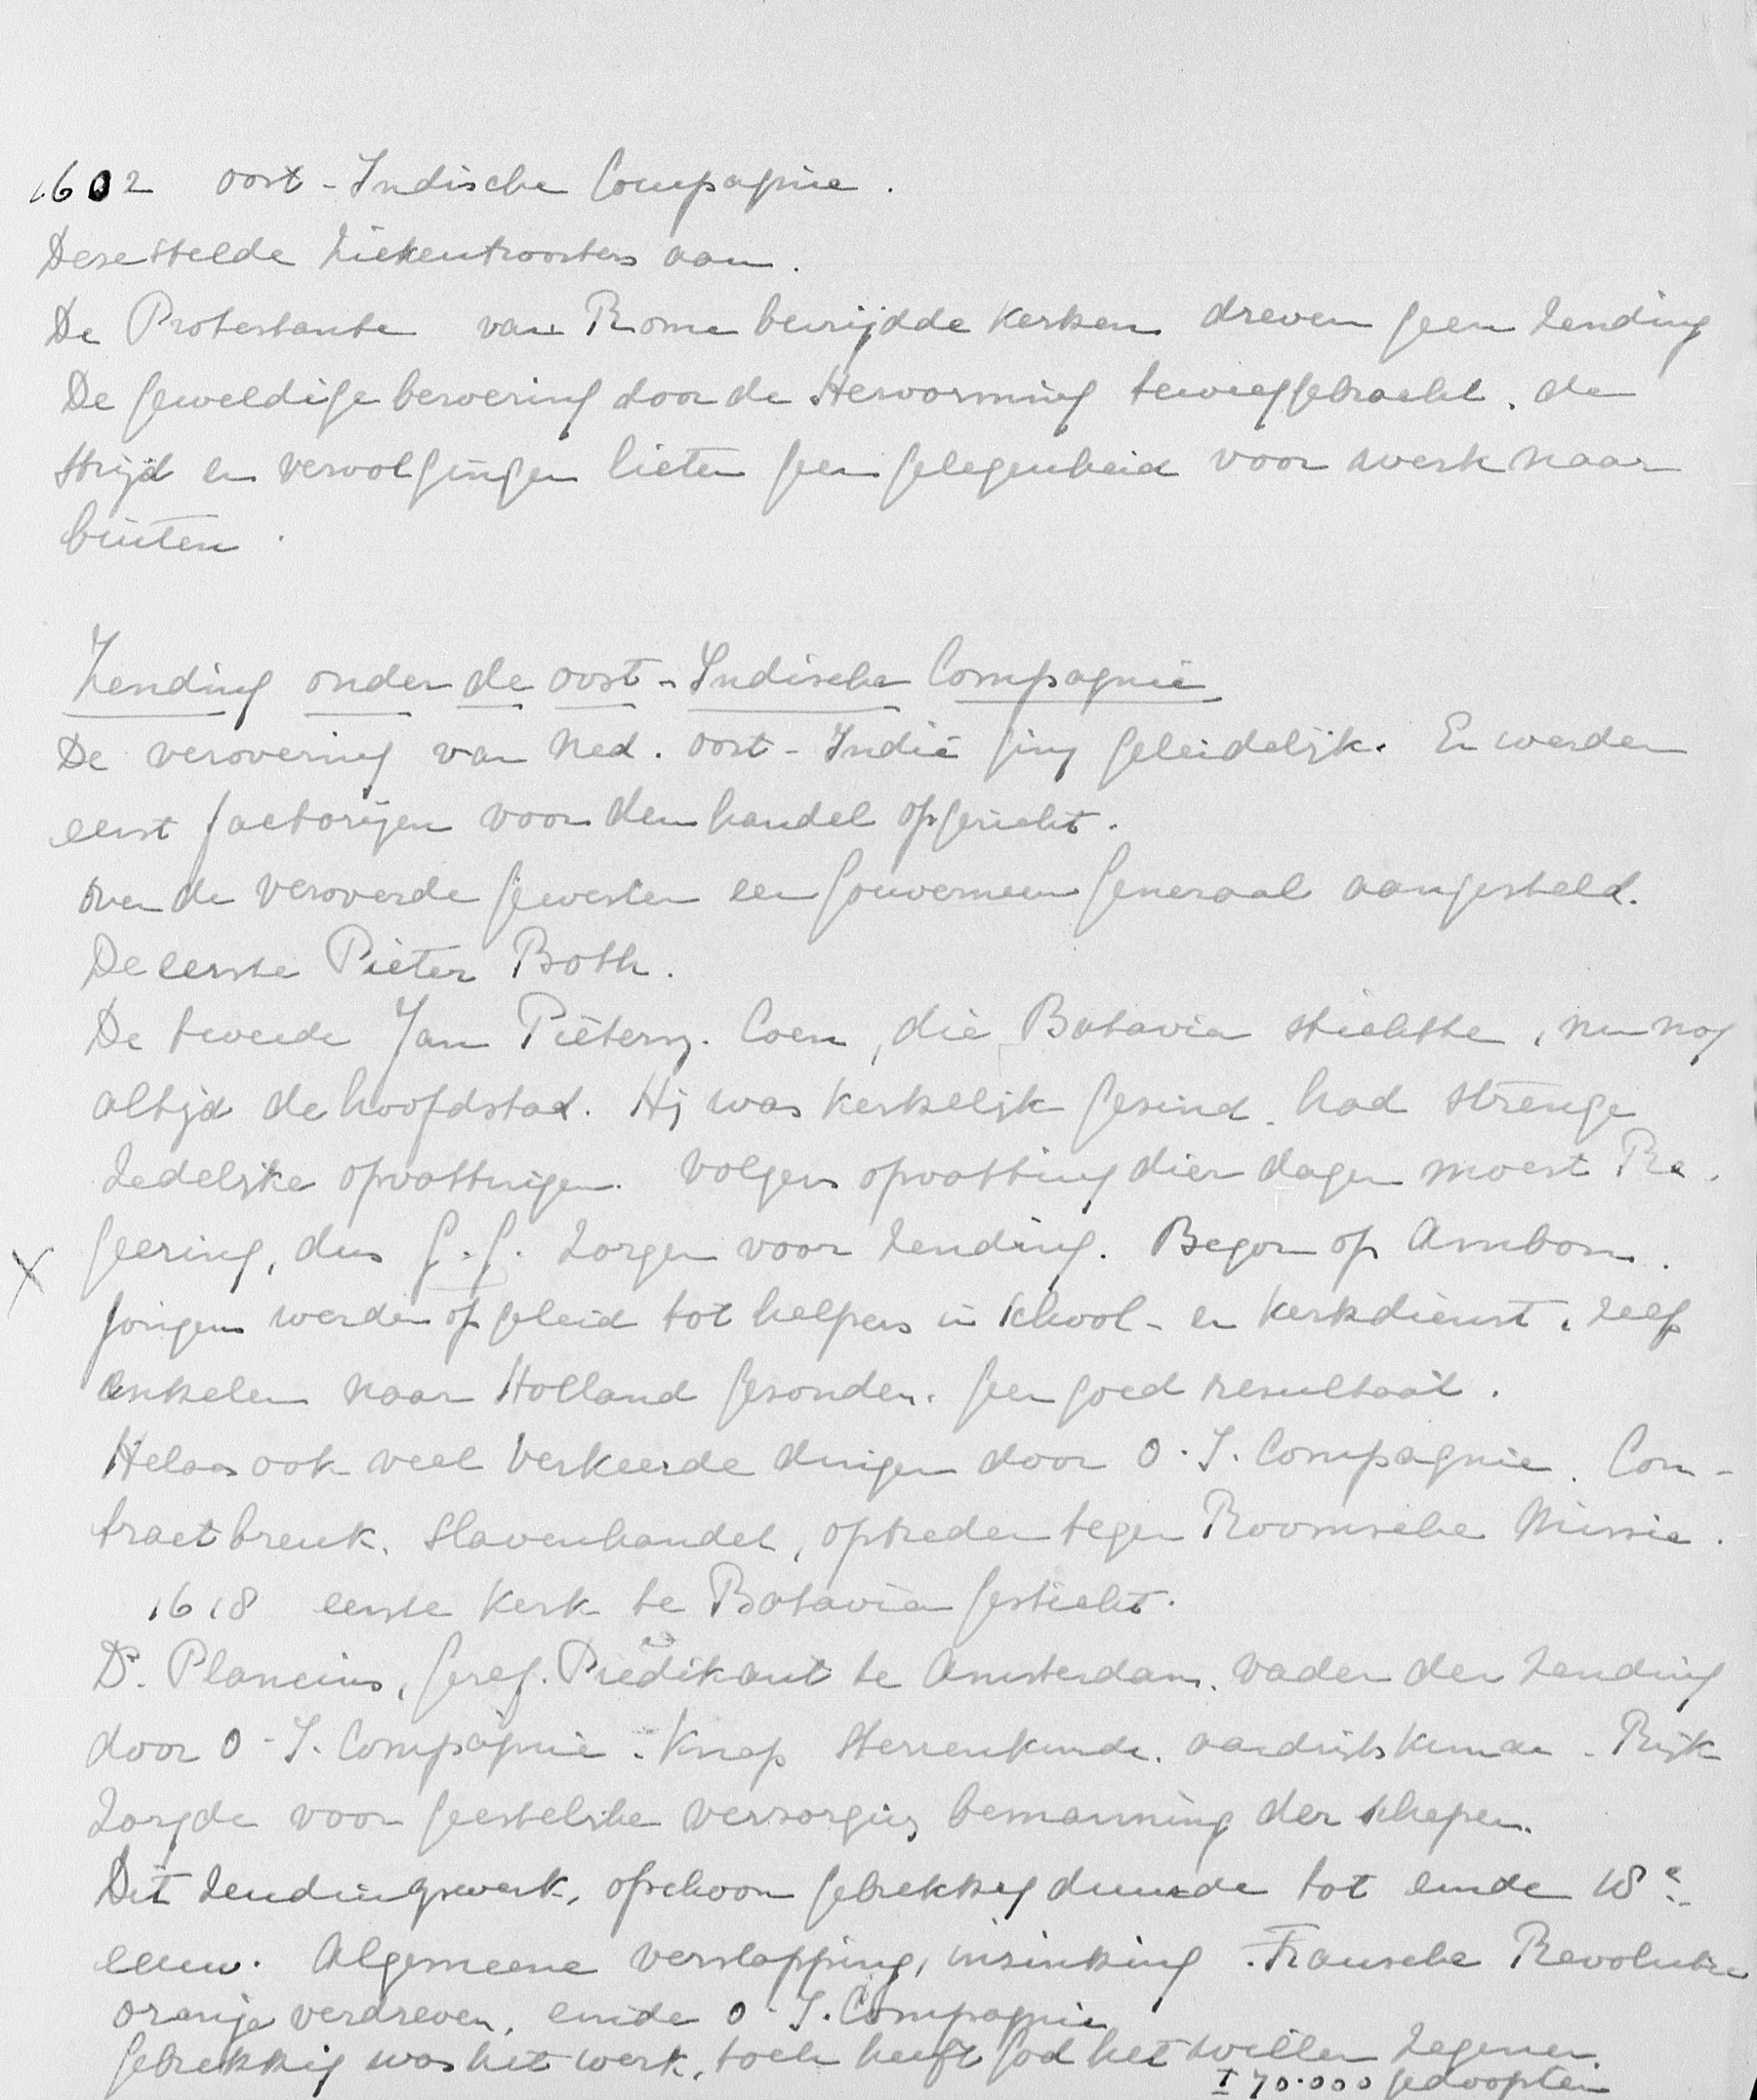 1602 Oost-Indische Compagnie.
Deze stelde Ziekentroosters aan.
De Protestante van Rome bevrijdde kerken dreven geen Zending
De geweldige beroering door de Hervorming teweeggebracht, de
strijd en vervolgingen lieten geen gelegenheid voor werk naar
buiten.
Zending onder de Oost-Indische Compagnie
De verovering van Ned. Oost-Indië ging geleidelijk. Er werden
eerst factorijen voor den handel opgericht.
Over de veroverde gewesten een Gouverneur Generaal aangesteld.
De eerste Pieter Both.
De tweede Jan Pietersz. Coen, die Batavia stichtte, nu nog
altijd de hoofdstad. Hij was kerkelijk gezind, had strenge
zedelijke opvattingen. Volgens opvatting dier dagen moest Re-
X geering, dus G.G. zorgen voor Zending. Begon op Ambon.
Jongens werden opgeleid tot helpers in school- en kerkdienst, zelfs
enkelen naar Holland gezonden. Geen goed resultaat.
Helaas ook veel verkeerde dingen door O.I. Compagnie. Con-
tractbreuk, Slavenhandel, optreden tegen Roomsche Missie.
1618 eerste kerk te Batavia gesticht.
Ds. Plancius, Geref. Predikant te Amsterdam, vader der Zending
door O-I. Compagnie. Knap Sterrenkunde, aardrijkskunde. Rijk
Zorgde voor geestelijke verzorging bemanning der schepen.
Dit Zendingswerk, ofschoon gebrekkig duurde tot einde 18e
eeuw. Algemeene verslapping, inzinking. Fransche Revolutie
Oranje verdreven, einde O-I. Compagnie
Gebrekkig was het werk, toch heeft God het willen zegenen.
± 70.000 gedoopten